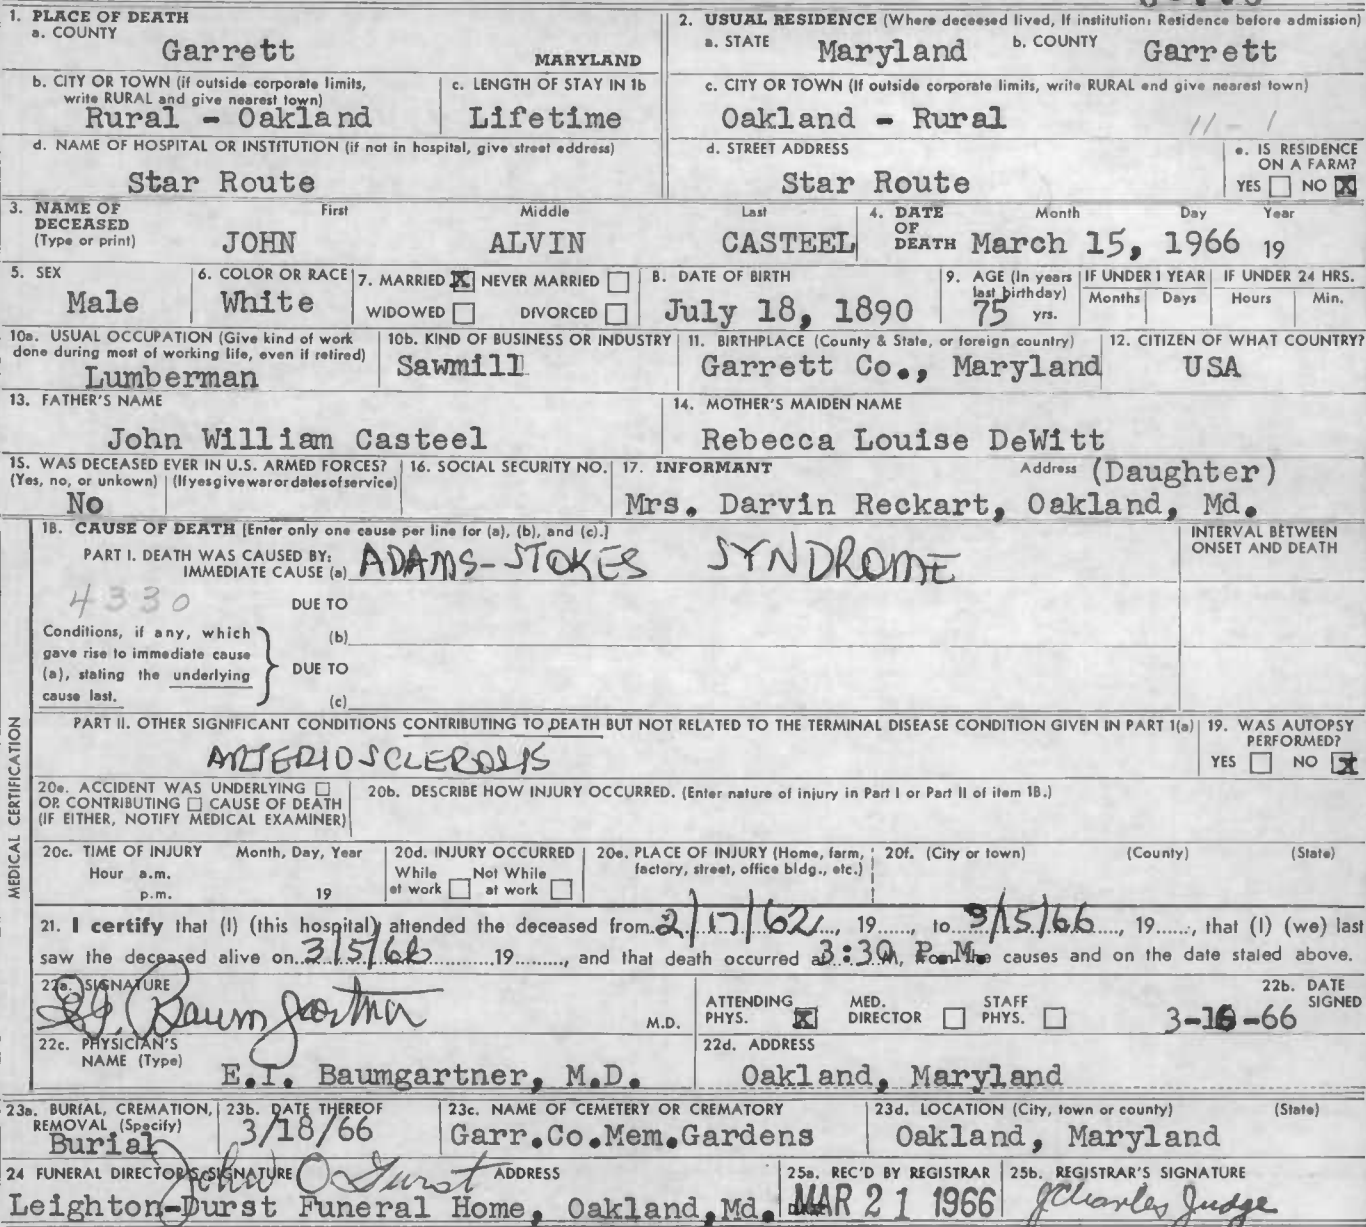 1. PLACE OF DEATH
a. COUNTY
Garrett MARYLAND
2. USUAL RESIDENCE (Where deceased lived, If institution: Residence before admission)
a. STATE Maryland b. COUNTY Garrett
b. CITY OR TOWN (if outside corporate limits, write RURAL and give nearest town)
Rural - Oakland
c. LENGTH OF STAY IN 1b
Lifetime
c. CITY OR TOWN (If outside corporate limits, write RURAL and give nearest town)
Oakland - Rural 11 - 1
d. NAME OF HOSPITAL OR INSTITUTION (if not in hospital, give street address)
Star Route
d. STREET ADDRESS
Star Route
e. IS RESIDENCE ON A FARM?
YES NO X
3. NAME OF DECEASED (Type or print)
First Middle Last
JOHN ALVIN CASTEEL
4. DATE OF DEATH Month Day Year
March 15, 1966 19
5. SEX
Male
6. COLOR OR RACE
White
7. MARRIED X NEVER MARRIED
WIDOWED DIVORCED
8. DATE OF BIRTH
July 18, 1890
9. AGE (In years last birthday)
75 yrs.
IF UNDER 1 YEAR
Months Days
IF UNDER 24 HRS.
Hours Min.
10a. USUAL OCCUPATION (Give kind of work done during most of working life, even if retired)
Lumberman
10b. KIND OF BUSINESS OR INDUSTRY
Sawmill
11. BIRTHPLACE (County & State, or foreign country)
Garrett Co., Maryland
12. CITIZEN OF WHAT COUNTRY?
USA
13. FATHER'S NAME
John William Casteel
14. MOTHER'S MAIDEN NAME
Rebecca Louise DeWitt
15. WAS DECEASED EVER IN U.S. ARMED FORCES?
(Yes, no, or unkown) (If yes give war or dates of service)
No
16. SOCIAL SECURITY NO.
17. INFORMANT Address (Daughter)
Mrs. Darvin Reckart, Oakland, Md.
MEDICAL CERTIFICATION
18. CAUSE OF DEATH [Enter only one cause per line for (a), (b), and (c).]
PART I. DEATH WAS CAUSED BY:
IMMEDIATE CAUSE (a) ADAMS-STOKES SYNDROME
INTERVAL BETWEEN ONSET AND DEATH
4330
DUE TO
(b)
Conditions, if any, which gave rise to immediate cause (a), stating the underlying cause last.
DUE TO
(c)
PART II. OTHER SIGNIFICANT CONDITIONS CONTRIBUTING TO DEATH BUT NOT RELATED TO THE TERMINAL DISEASE CONDITION GIVEN IN PART 1(a)
ARTERIOSCLEROSIS
19. WAS AUTOPSY PERFORMED?
YES NO X
20a. ACCIDENT WAS UNDERLYING
OR CONTRIBUTING CAUSE OF DEATH
(IF EITHER, NOTIFY MEDICAL EXAMINER)
20b. DESCRIBE HOW INJURY OCCURRED. (Enter nature of injury in Part I or Part II of item 18.)
20c. TIME OF INJURY Month, Day, Year
Hour a.m.
p.m. 19
20d. INJURY OCCURRED
While at work Not While at work
20e. PLACE OF INJURY (Home, farm, factory, street, office bldg., etc.)
20f. (City or town) (County) (State)
21. I certify that (I) (this hospital) attended the deceased from 2/17/62, 19......, to 3/15/66, 19......, that (I) (we) last
saw the deceased alive on 3/5/66 19........, and that death occurred at 3:30 P.M. M, from the causes and on the date stated above.
22a. SIGNATURE
E.I. Baumgartner M.D.
ATTENDING PHYS. X MED. DIRECTOR STAFF PHYS.
22b. DATE SIGNED
3-16-66
22c. PHYSICIAN'S NAME (Type)
E.I. Baumgartner, M.D.
22d. ADDRESS
Oakland, Maryland
23a. BURIAL, CREMATION, REMOVAL (Specify)
Burial
23b. DATE THEREOF
3/18/66
23c. NAME OF CEMETERY OR CREMATORY
Garr.Co.Mem.Gardens
23d. LOCATION (City, town or county) (State)
Oakland, Maryland
24 FUNERAL DIRECTOR'S SIGNATURE ADDRESS
John O Durst
Leighton-Durst Funeral Home, Oakland,Md.
25a. REC'D BY REGISTRAR
MAR 21 1966
25b. REGISTRAR'S SIGNATURE
J Charles Judge